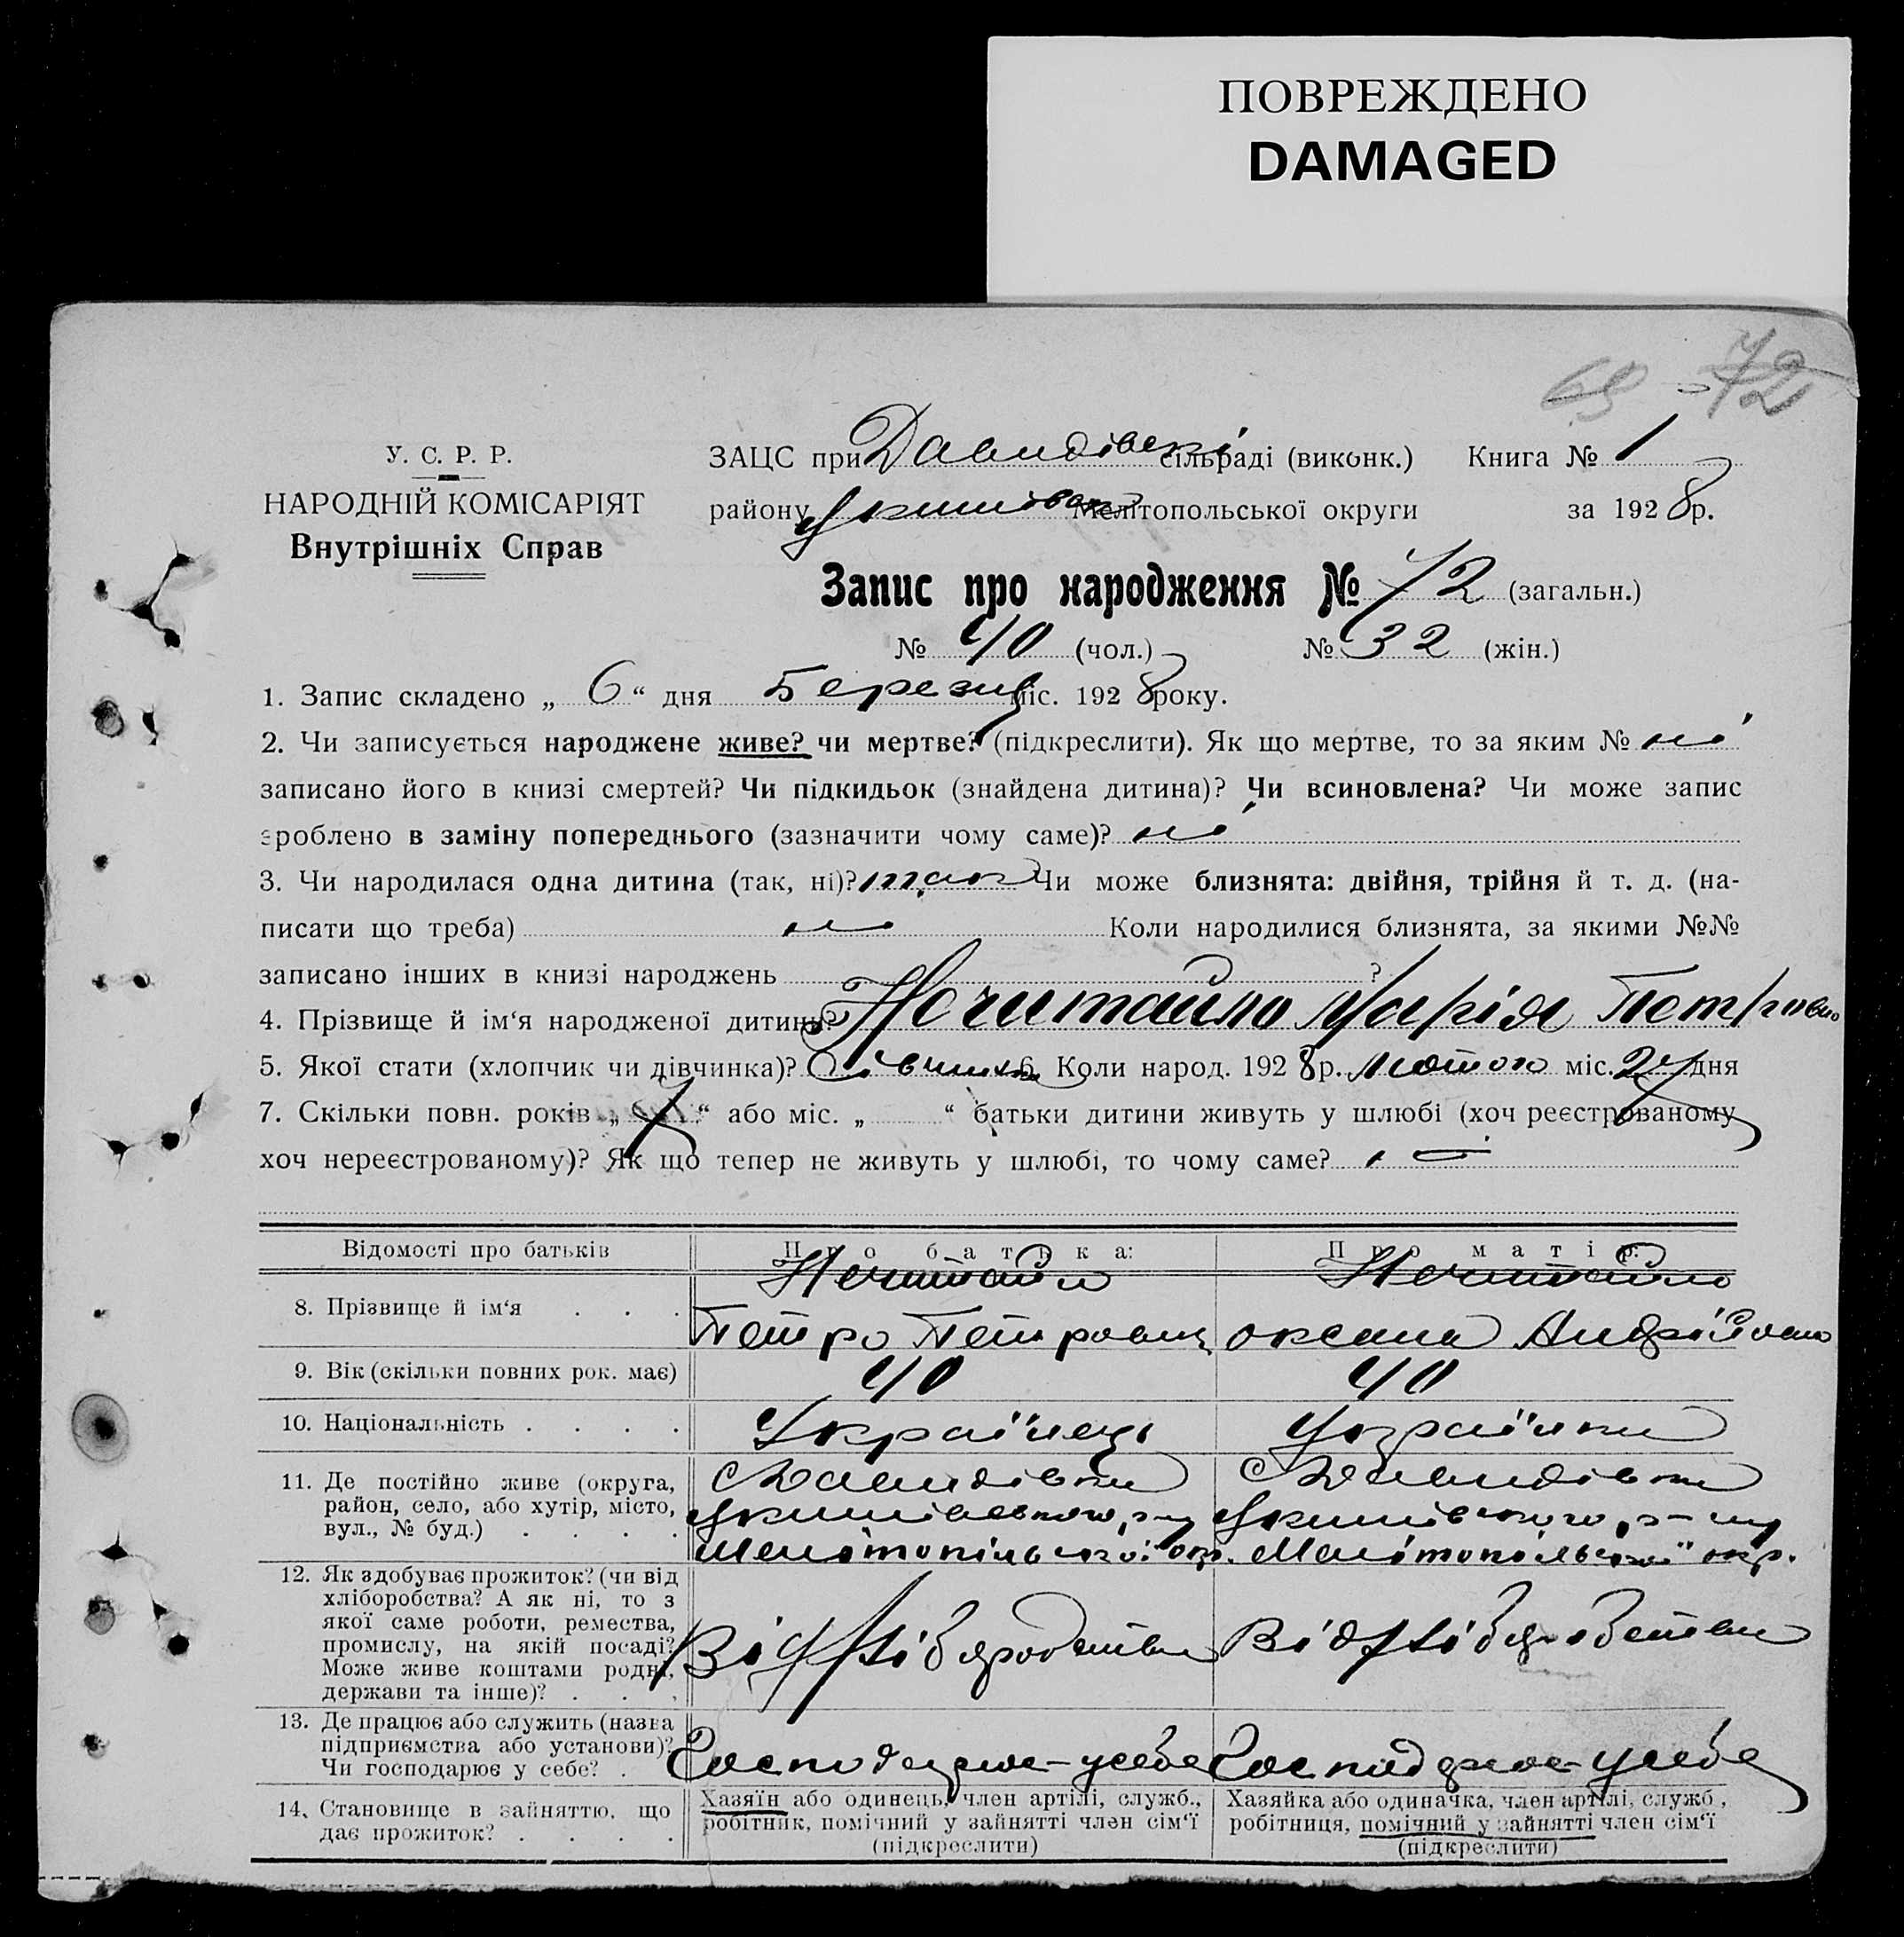 ПОВРЕЖДЕНО
DAMAGED
69 72
У. С. Р. Р.
НАРОДНІЙ КОМІСАРІЯТ
Внутрішніх Справ
ЗАЦС при Давидівські сільраді (виконк.) Книга № 1
району Якимівськ Мелітопольської округи за 1928 р.
Запис про народження № 72 (загальн.)
№ 40 (чол.) № 32 (жін.)
1. Запис складено „ 6 “ дня Березня міс. 1928 року.
2. Чи записується народжене живе? чи мертве? (підкреслити). Як що мертве, то за яким № ні
записано його в книзі смертей? Чи підкидьок (знайдена дитина)? Чи всиновлена? Чи може запис
зроблено в заміну попереднього (зазначити чому саме)? ні
3. Чи народилася одна дитина (так, ні)? так Чи може близнята: двійня, трійня й т. д. (на-
писати що треба) Коли народилися близнята, за якими №№
записано інших в книзі народжень ?
4. Прізвище й ім‘я народженої дитини? Нечитайло Марія Петровно
5. Якої стати (хлопчик чи дівчинка)? Дівчинка 6. Коли народ. 1928 р. лютого міс. 24 дня
7. Скільки повн. років „ “ або міс. „ “ батьки дитини живуть у шлюбі (хоч реєстрованому
хоч нереєстрованому)? Як що тепер не живуть у шлюбі, то чому саме?
Відомості про батьків Про батька: Про матір:
8. Прізвище й ім‘я . . . Нечитайло Нечитайло
Петро Петрович Оксана Андріївно
9. Вік (скільки повних рок. має) 40 40
10. Національність . . . . Українець Українка
11. Де постійно живе (округа, Давидівка Давидівка
район, село, або хутір, місто, Якимівського р-ну Якимівського р-ну
вул., № буд.) . . . . Мелітопільської окр. Мелітопольської окр.
12. Як здобуває прожиток? (чи від
хліборобства? А як ні, то з
якої саме роботи, ремества,
промислу, на якій посаді? Від хліборобства Від хліборобства
Може живе коштами родні,
держави та інше)? . . .
13. Де працює або служить (назва
підприємства або установи)? Господарює у себе Господарює у себе
Чи господарює у себе? .
14. Становище в зайняттю, що Хазяїн або одинець, член артілі, служб., Хазяйка або одиначка, член артілі, служб.,
дає прожиток? . . . . робітник, помічний у зайнятті член сім‘ї робітниця, помічний у зайнятті член сім‘ї
(підкреслити) (підкреслити)